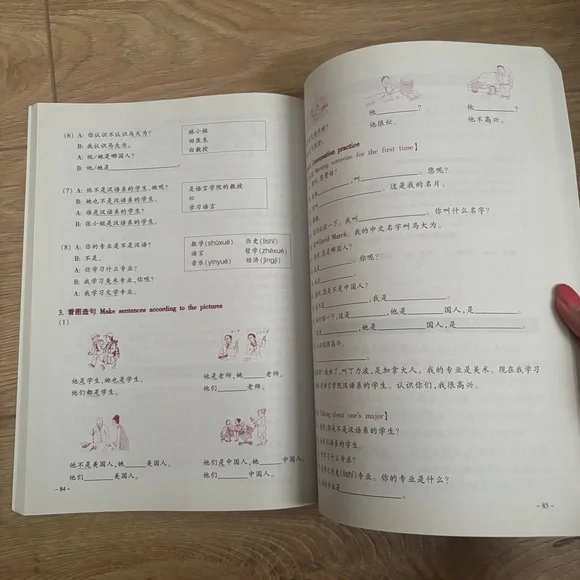 (6) A: 你认识不认识马大为?
B: 我认识马大为。
A: 他/她是哪国人?
B: 他/她是
林小姐
田医生
白教授
(7) A: 他不是汉语系的学生,她呢?
B: 她也不是汉语系的学生。
A: 谁是汉语系的学生?
B: 张小姐是汉语系的学生。
是语言学院的教授
忙
学习语言
(8) A: 你的专业是不是汉语?
B: 不是。
A: 你学习什么专业?
B: 我学习美术专业,你呢?
A: 我学习文学专业。
数学(shùxué) 历史(lìshǐ)
语言 哲学(zhéxué)
音乐(yīnyuè) 经济(jīngjì)
3. 看图造句 Make sentences according to the pictures
(1)
他是学生,她也是学生。
他们都是学生。
他是老师,她____老师。
他们____老师。
他不是美国人,她____美国人。
他们____美国人。
他们是中国人,她____中国人
他们____中国人。
– 84 –
他____?
他很忙。
他____?
他不高兴。
practice
someone for the first time】
,叫____。您呢?
。这是我的名片。
识一下。我叫____。你叫什么名字?
March, 我的中文名字叫马大为。
是哪国人?
。你呢?
是不是中国人?
,我是____。
,这是____,他是____国人,是____。
,她是____国人,是____。
很高兴。
,叫丁力波,是加拿大人。我的专业是美术。现在我学习
语言学院汉语系的学生。认识你们,我很高兴。
about one's major】
是不是汉语系的学生?
汉语系的学生。
什么专业?
历史(lìshǐ)专业。你的专业是什么?
– 85 –